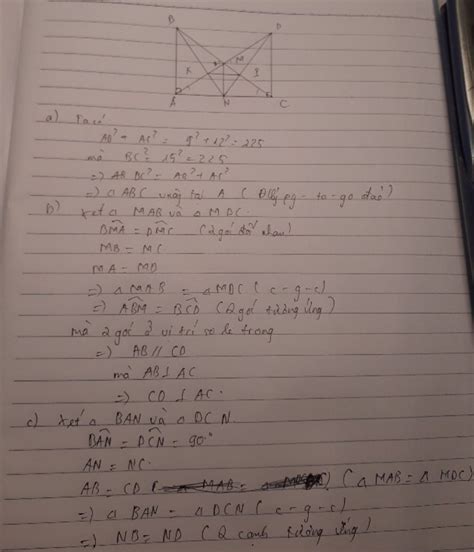 B D
K M I
A N C
a) Ta có
AB² + AC² = 9² + 12² = 225
mà BC² = 15² = 225
=) BC² = AB² + AC²
=) △ ABC vuông tại A ( Đ lý py - ta - go đảo )
b) Xét △ MAB và △ MDC.
BMA = DMC ( 2 góc đối nhau )
MB = MC
MA = MD
=) △ MAB = △ MDC ( c - g - c )
=) ABM = BCD ( 2 góc tương ứng )
mà 2 góc ở vị trí so le trong
=) AB // CD
mà AB ⊥ AC
=) CD ⊥ AC.
c) Xét △ BAN và △ DCN.
BAN = DCN = 90°
AN = NC.
AB = CD ( △ MAB = △ MDC )
=) △ BAN = △ DCN ( c - g - c )
=) NB = ND ( 2 cạnh tương ứng )